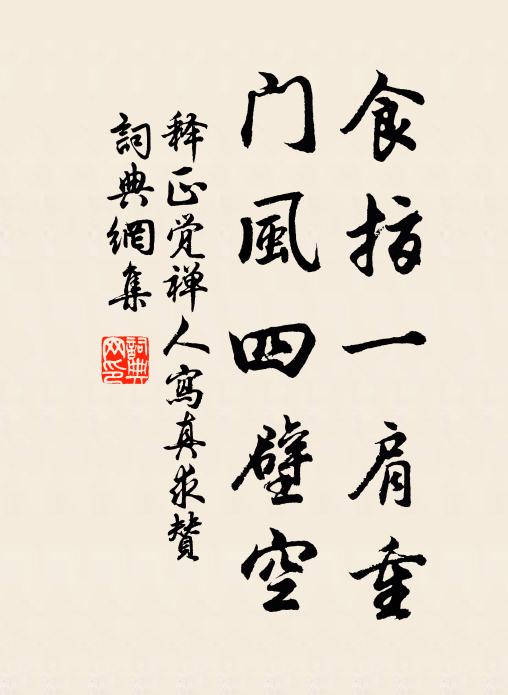 食指一肩重
门風四壁空
释正觉禅人寫真求赞
詞典網集
詞典网印